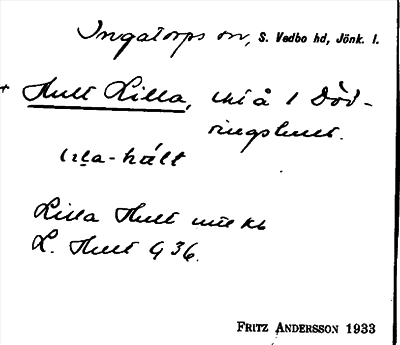 Ingatorps sn, S. Vedbo hd, Jönk. l.
+ Hult Lilla, på 1 Död-
ringshult.
lɩla-hált
Lilla Hult
L. Hult G 36.
FRITZ ANDERSSON 1933